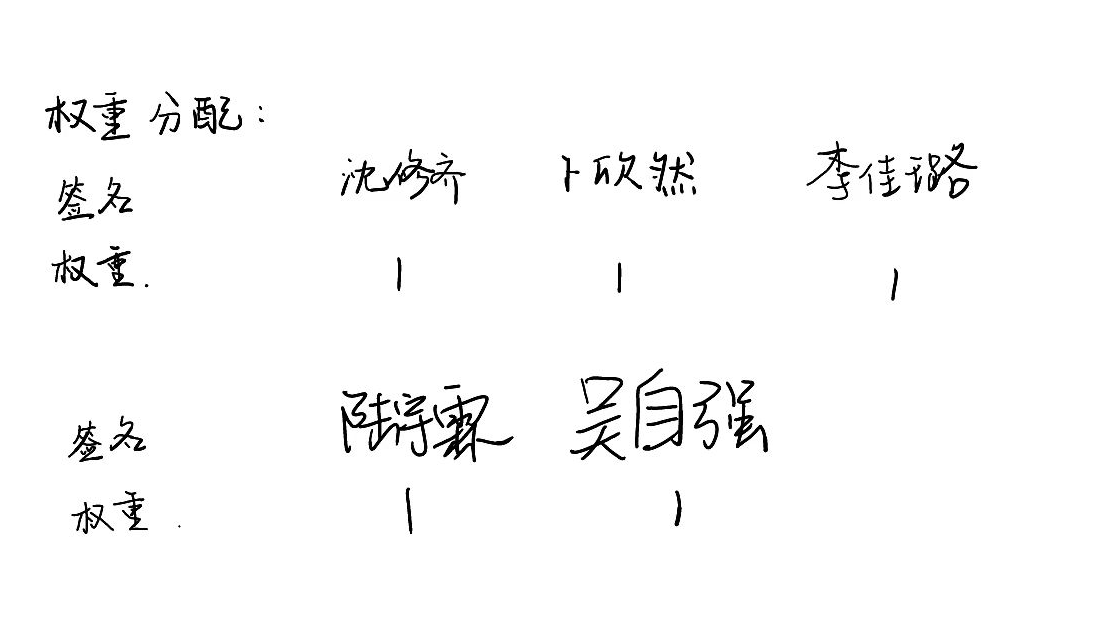 权重分配：
签名 沈修齐 卜欣然 李佳璐
权重. 1 1 1
签名 陆守霖 吴自强
权重. 1 1